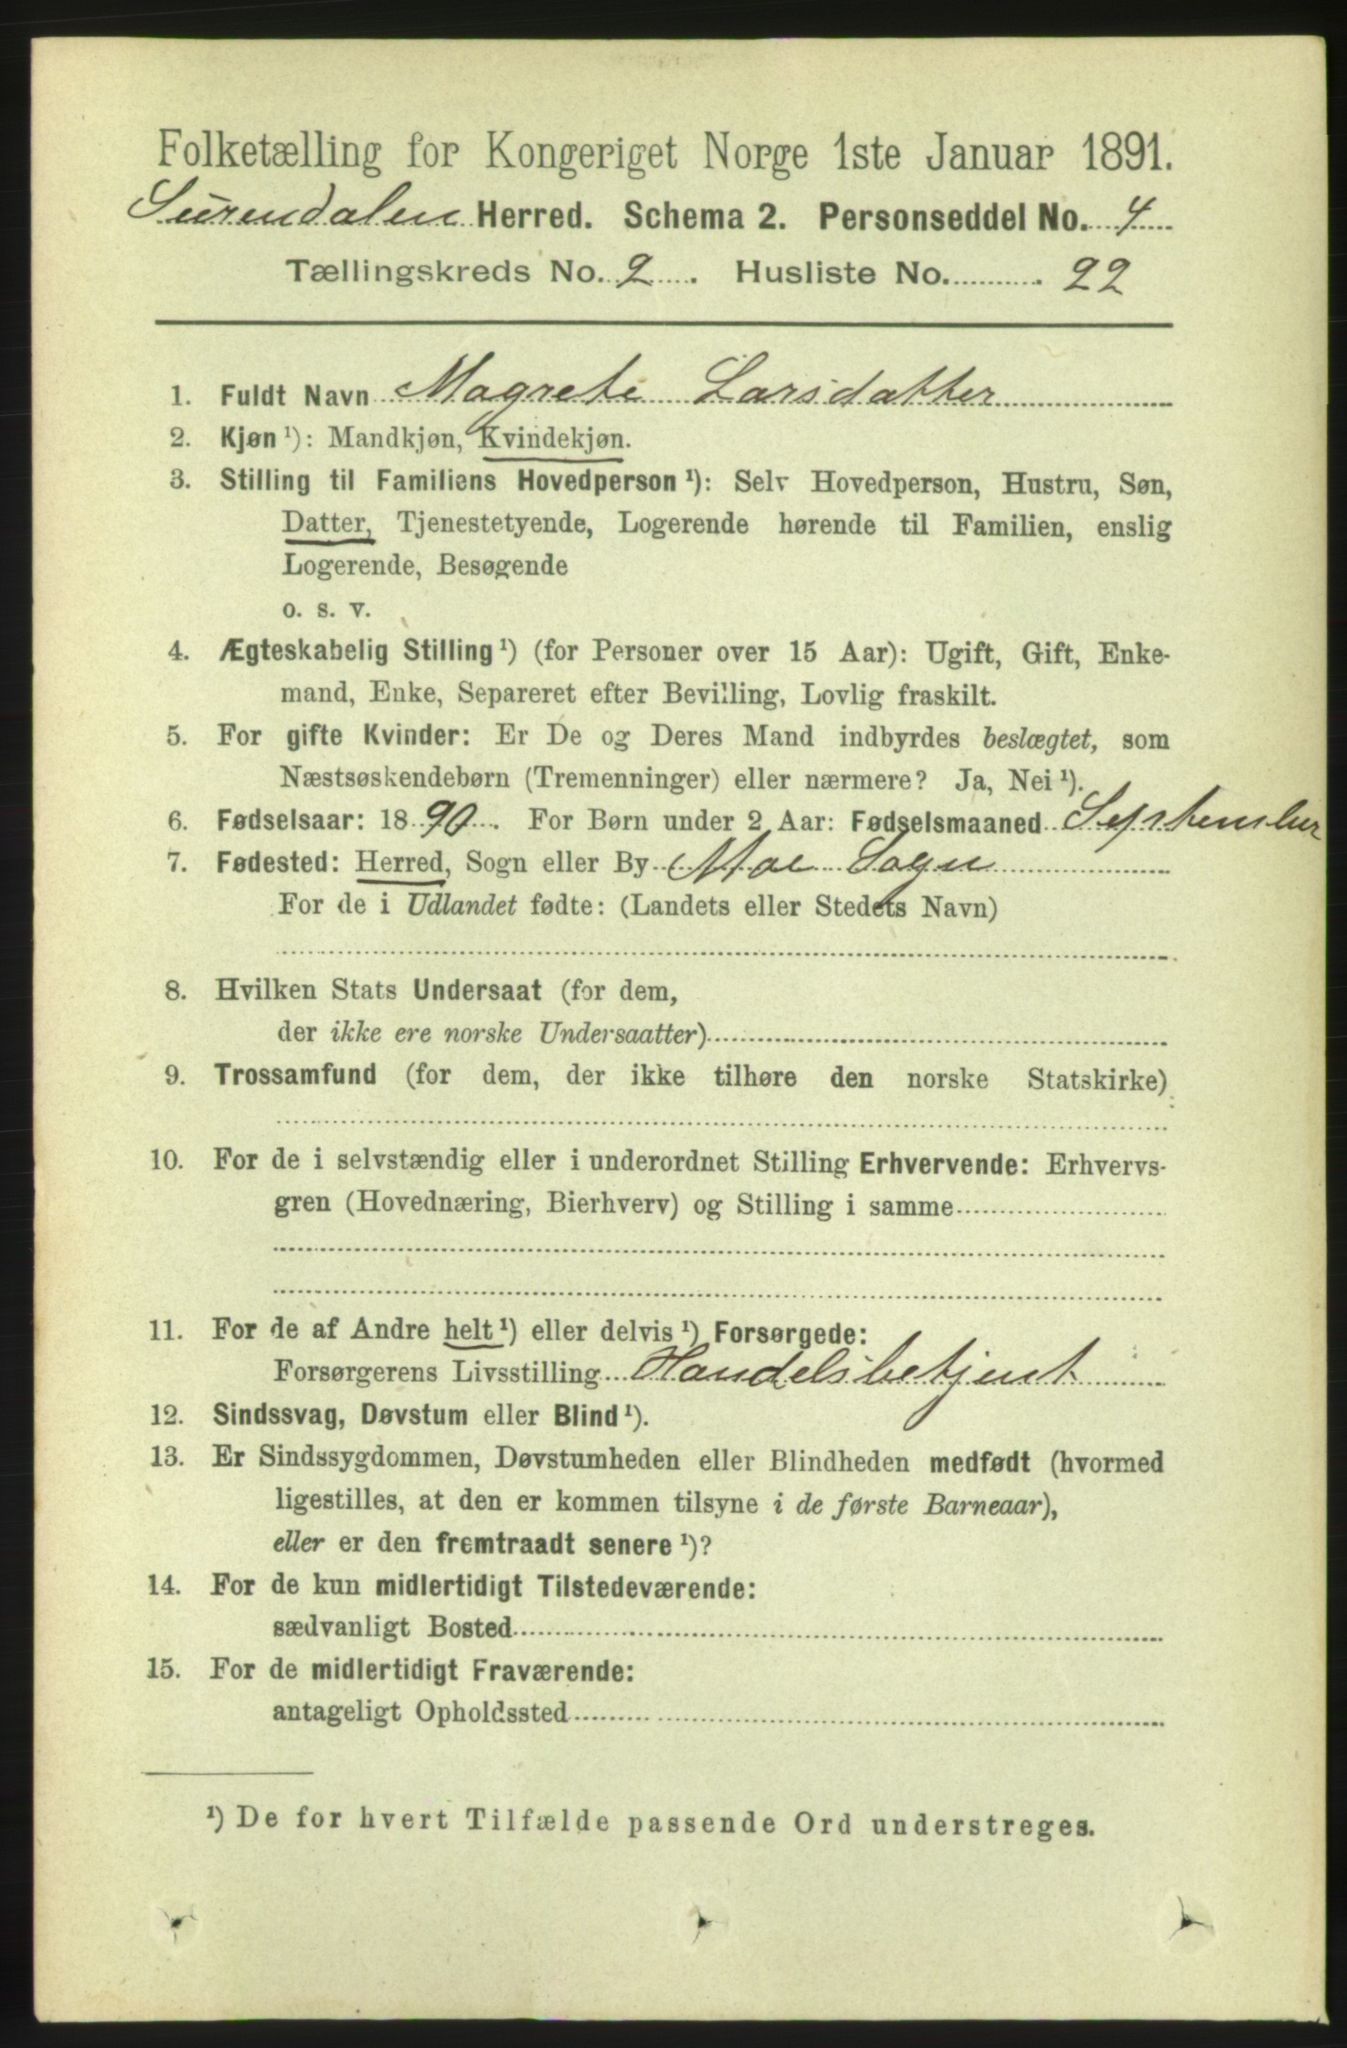 Folketælling for Kongeriget Norge 1ste Januar 1891.
Surendalen Herred. Schema 2. Personseddel No. 4
Tællingskreds No. 2. Husliste No. 22
1. Fuldt Navn Magrete Larsdatter
2. Kjøn ¹): Mandkjøn, Kvindekjøn.
3. Stilling til Familiens Hovedperson ¹): Selv Hovedperson, Hustru, Søn,
Datter, Tjenestetyende, Logerende hørende til Familien, enslig
Logerende, Besøgende
o. s. v.
4. Ægteskabelig Stilling ¹) (for Personer over 15 Aar): Ugift, Gift, Enke-
mand, Enke, Separeret efter Bevilling, Lovlig fraskilt.
5. For gifte Kvinder: Er De og Deres Mand indbyrdes beslægtet, som
Næstsøskendebørn (Tremenninger) eller nærmere? Ja, Nei ¹).
6. Fødselsaar: 1890. For Børn under 2 Aar: Fødselsmaaned September
7. Fødested: Herred, Sogn eller By Moe Sogn
For de i Udlandet fødte: (Landets eller Stedets Navn)
8. Hvilken Stats Undersaat (for dem,
der ikke ere norske Undersaatter)
9. Trossamfund (for dem, der ikke tilhøre den norske Statskirke)
10. For de i selvstændig eller i underordnet Stilling Erhvervende: Erhvervs-
gren (Hovednæring, Bierhverv) og Stilling i samme
11. For de af Andre helt ¹) eller delvis ¹) Forsørgede:
Forsørgerens Livsstilling Handelsbetjent
12. Sindssvag, Døvstum eller Blind ¹).
13. Er Sindssygdommen, Døvstumheden eller Blindheden medfødt (hvormed
ligestilles, at den er kommen tilsyne i de første Barneaar),
eller er den fremtraadt senere ¹)?
14. For de kun midlertidigt Tilstedeværende:
sædvanligt Bosted
15. For de midlertidigt Fraværende:
antageligt Opholdssted
¹) De for hvert Tilfælde passende Ord understreges.